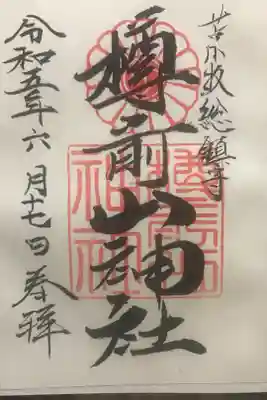 苫小牧総鎮守
樽前山神社
令和五年六月十七日奉拝